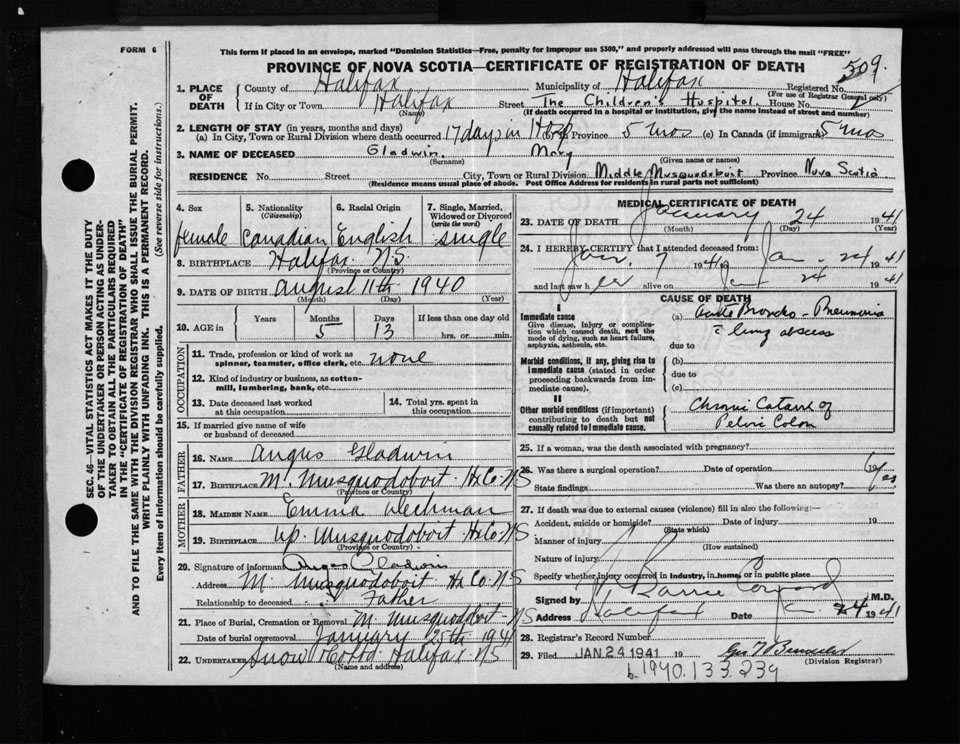 FORM 6
This form if placed in an envelope, marked "Dominion Statistics—Free, penalty for improper use $300," and properly addressed will pass through the mail "FREE"
PROVINCE OF NOVA SCOTIA—CERTIFICATE OF REGISTRATION OF DEATH
509.
1. PLACE OF DEATH County of Halifax Municipality of Halifax Registered No.
(For use of Registrar General only)
If in City or Town Halifax Street The Children's Hospital House No.
(Name) (If death occurred in a hospital or institution, give the name instead of street and number)
2. LENGTH OF STAY (in years, months and days)
(a) In City, Town or Rural Division where death occurred 17 days in Province 5 mos (c) In Canada (if immigrant) 5 mos
3. NAME OF DECEASED Gladwin, Mary
(Surname) (Given name or names)
RESIDENCE No. Street City, Town or Rural Division Middle Musquodoboit Province Nova Scotia
(Residence means usual place of abode. Post Office Address for residents in rural parts not sufficient)
4. Sex 5. Nationality (Citizenship) 6. Racial Origin 7. Single, Married, Widowed or Divorced (write the word)
female Canadian English single
8. BIRTHPLACE Halifax N.S.
(Province or Country)
9. DATE OF BIRTH August 11th 1940
(Month) (Day) (Year)
10. AGE in Years Months Days If less than one day old
5 13 hrs. or min.
OCCUPATION
11. Trade, profession or kind of work as spinner, teamster, office clerk, etc. none
12. Kind of industry or business, as cotton-mill, lumbering, bank, etc.
13. Date deceased last worked at this occupation
14. Total yrs. spent in this occupation
15. If married give name of wife or husband of deceased
FATHER
16. NAME Angus Gladwin
17. BIRTHPLACE M. Musquodoboit Hx Co. NS
(Province or Country)
MOTHER
18. MAIDEN NAME Emma
19. BIRTHPLACE Up. Musquodoboit HxCo NS
(Province or Country)
20. Signature of informant Angus Gladwin
Address M. Musquodoboit Hx Co. NS
Relationship to deceased Father
21. Place of Burial, Cremation or Removal M. Musquodoboit NS
Date of burial or removal January 25th 1941
22. UNDERTAKER Snow & Co Ltd. Halifax NS
(Name and address)
MEDICAL CERTIFICATE OF DEATH
23. DATE OF DEATH January 24 1941
(Month) (Day) (Year)
24. I HEREBY CERTIFY that I attended deceased from:
Jan. 7 1941 to Jan. 24 1941
and last saw her alive on Jan 24 1941
CAUSE OF DEATH
I
Immediate cause
Give disease, injury or complication which caused death, not the mode of dying, such as heart failure, asphyxia, asthenia, etc.
(a) Acute Broncho-Pneumonia
c̄ lung abscess
due to
Morbid conditions, if any, giving rise to immediate cause (stated in order proceeding backwards from immediate cause).
(b)
due to
(c)
II
Other morbid conditions (if important) contributing to death but not causally related to immediate cause.
Chronic Catarrh of
Pelvic Colon
25. If a woman, was the death associated with pregnancy?
26. Was there a surgical operation? Date of operation 19
State findings Was there an autopsy? Yes
27. If death was due to external causes (violence) fill in also the following:—
Accident, suicide or homicide? Date of injury 19
(State which)
Manner of injury
(How sustained)
Nature of injury
Specify whether injury occurred in industry, in home, or in public place
Signed by Barrie Coward M.D.
Address Halifax Date Jan. 24 1941
28. Registrar's Record Number
29. Filed JAN 24 1941 19
(Division Registrar)
b. 1940.133.239
SEC. 46—VITAL STATISTICS ACT MAKES IT THE DUTY
OF THE UNDERTAKER OR PERSON ACTING AS UNDERTAKER TO OBTAIN ALL THE PARTICULARS REQUIRED
IN THE "CERTIFICATE OF REGISTRATION OF DEATH"
AND TO FILE THE SAME WITH THE DIVISION REGISTRAR WHO SHALL ISSUE THE BURIAL PERMIT.
WRITE PLAINLY WITH UNFADING INK. THIS IS A PERMANENT RECORD.
Every item of information should be carefully supplied. (See reverse side for instructions.)